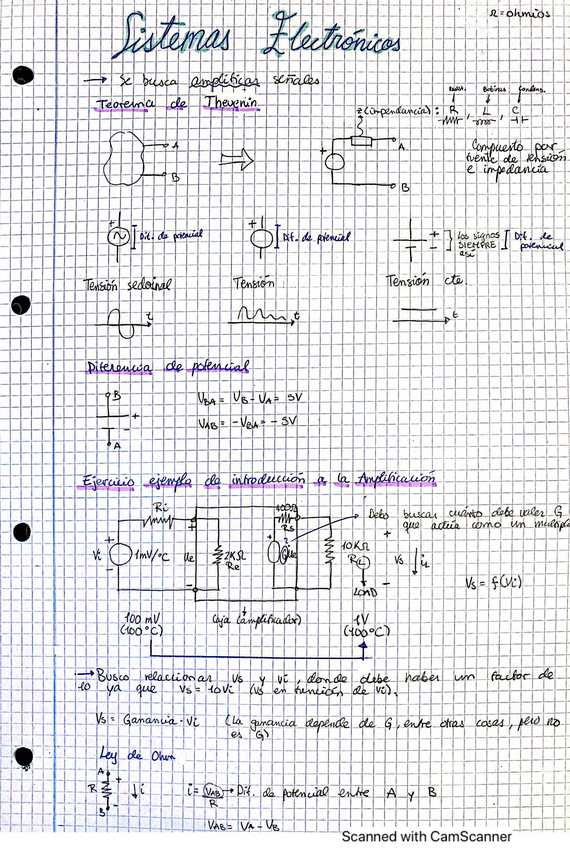 Ω = ohmios
Sistemas Electrónicos
→ Se busca amplificar señales
Teorema de Thevenin
Z (impedancia): R, L, C
Bobinas
A
B
A
B
Compuesto por
fuente de tensión
e impedancia
Dif. de potencial
Dif. de potencial
Los signos
SIEMPRE
así
Dif. de
potencial
Tensión
Tensión cte.
t
t
t
Diferencia de potencial
B
A
VBA = VB - VA = 5V
VAB = -VBA = -5V
Ejercicio ejemplo de introducción a la Amplificación
Ri
400Ω
Rs
Debo buscar cuánto debe valer G
que actúa como un
Vi
1mV/°C
Ue
2KΩ
Re
10KΩ
RL
LOAD
Vs
iL
Vs = f(Vi)
100 mV
(100°C)
Caja (amplificador)
1V
(100°C)
→ Busco relacionar Vs y Vi, donde debe haber un factor de
10 ya que Vs = 10Vi (Vs en función de Vi).
Vs = Ganancia · Vi (La ganancia depende de G, entre otras cosas, pero no
es G)
Ley de Ohm
A
R
i
B
i = VAB/R → Dif. de potencial entre A y B
VAB = VA - VB
Scanned with CamScanner